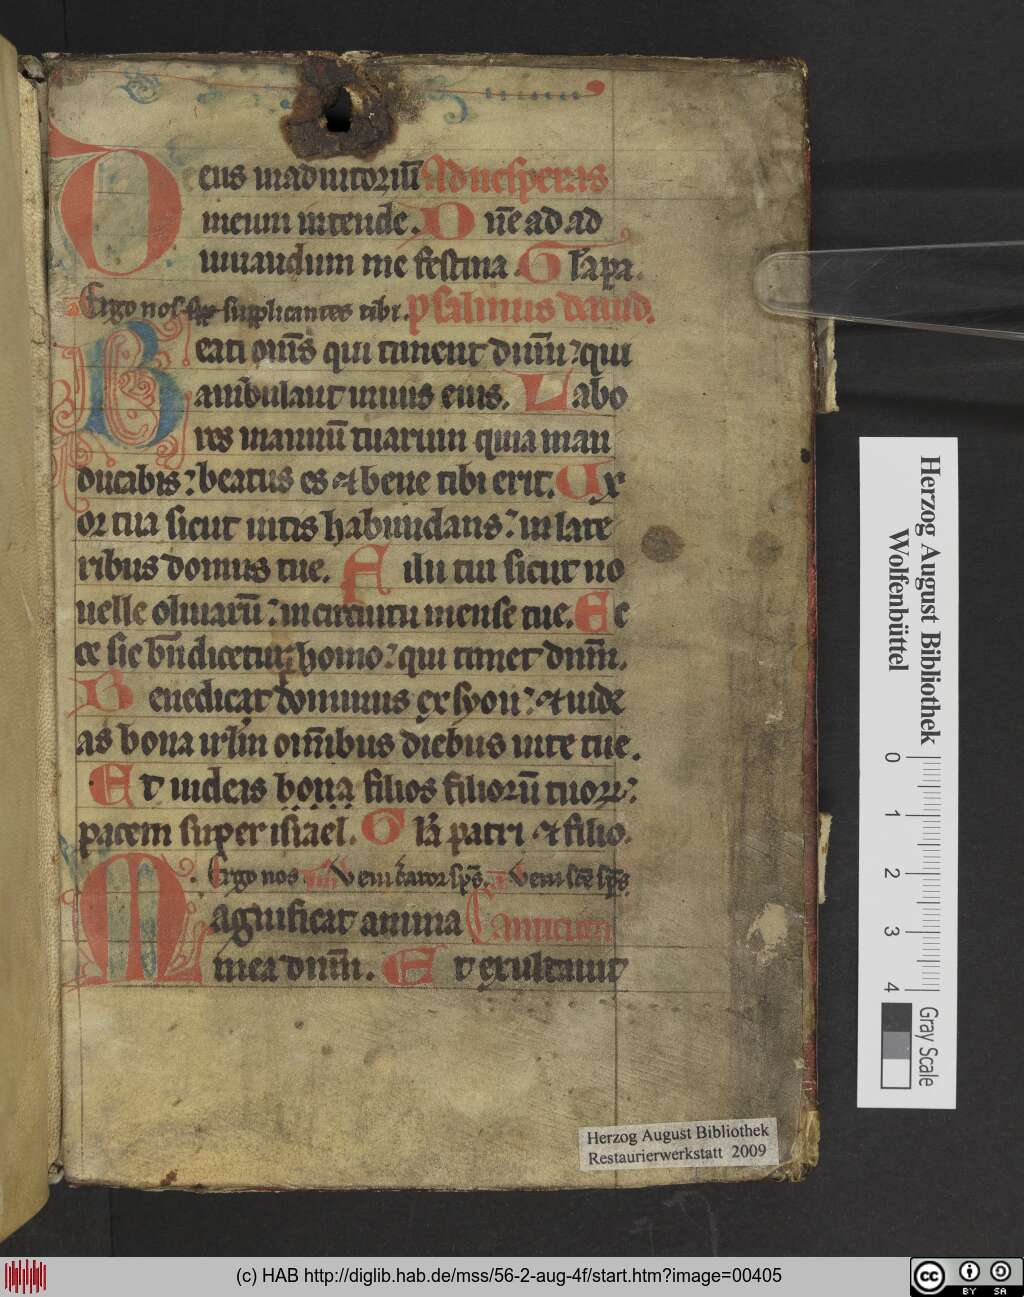 Deus in adiutoriū Ad uesperas
meum intende. Dn̄e ad ad
iuuandum me festina. Gl'a pa.
Ergo nos supplicantes tibi. psalmus dauid.
Beati om̄s qui timent dnm̄: qui
ambulant in uiis eius. Labo
res manuū tuarum quia man
ducabis: beatus es et bene tibi erit. Ux
or tua sicut uitis habundans: in late
ribus domus tue. Filii tui sicut no
uelle oliuarū: in circuitu mense tue. Ec
ce sic bn̄dicetur homo: qui timet dnm̄.
Benedicat dominus ex syon: et uide
as bona irl'm om̄ibus diebus uite tue.
Et uideas bona filios filiorū tuorꝝ:
pacem super israel. Gl'a patri et filio.
Ergo nos Veni c̄ator sp̄s. Veni sc̄e sp̄s
Magnificat anima Canticum
mea dnm̄. Et exultauit
Herzog August Bibliothek
Restaurierwerkstatt 2009
Herzog August Bibliothek
Wolfenbüttel
0 1 2 3 4
Gray Scale
(c) HAB http://diglib.hab.de/mss/56-2-aug-4f/start.htm?image=00405
cc BY SA